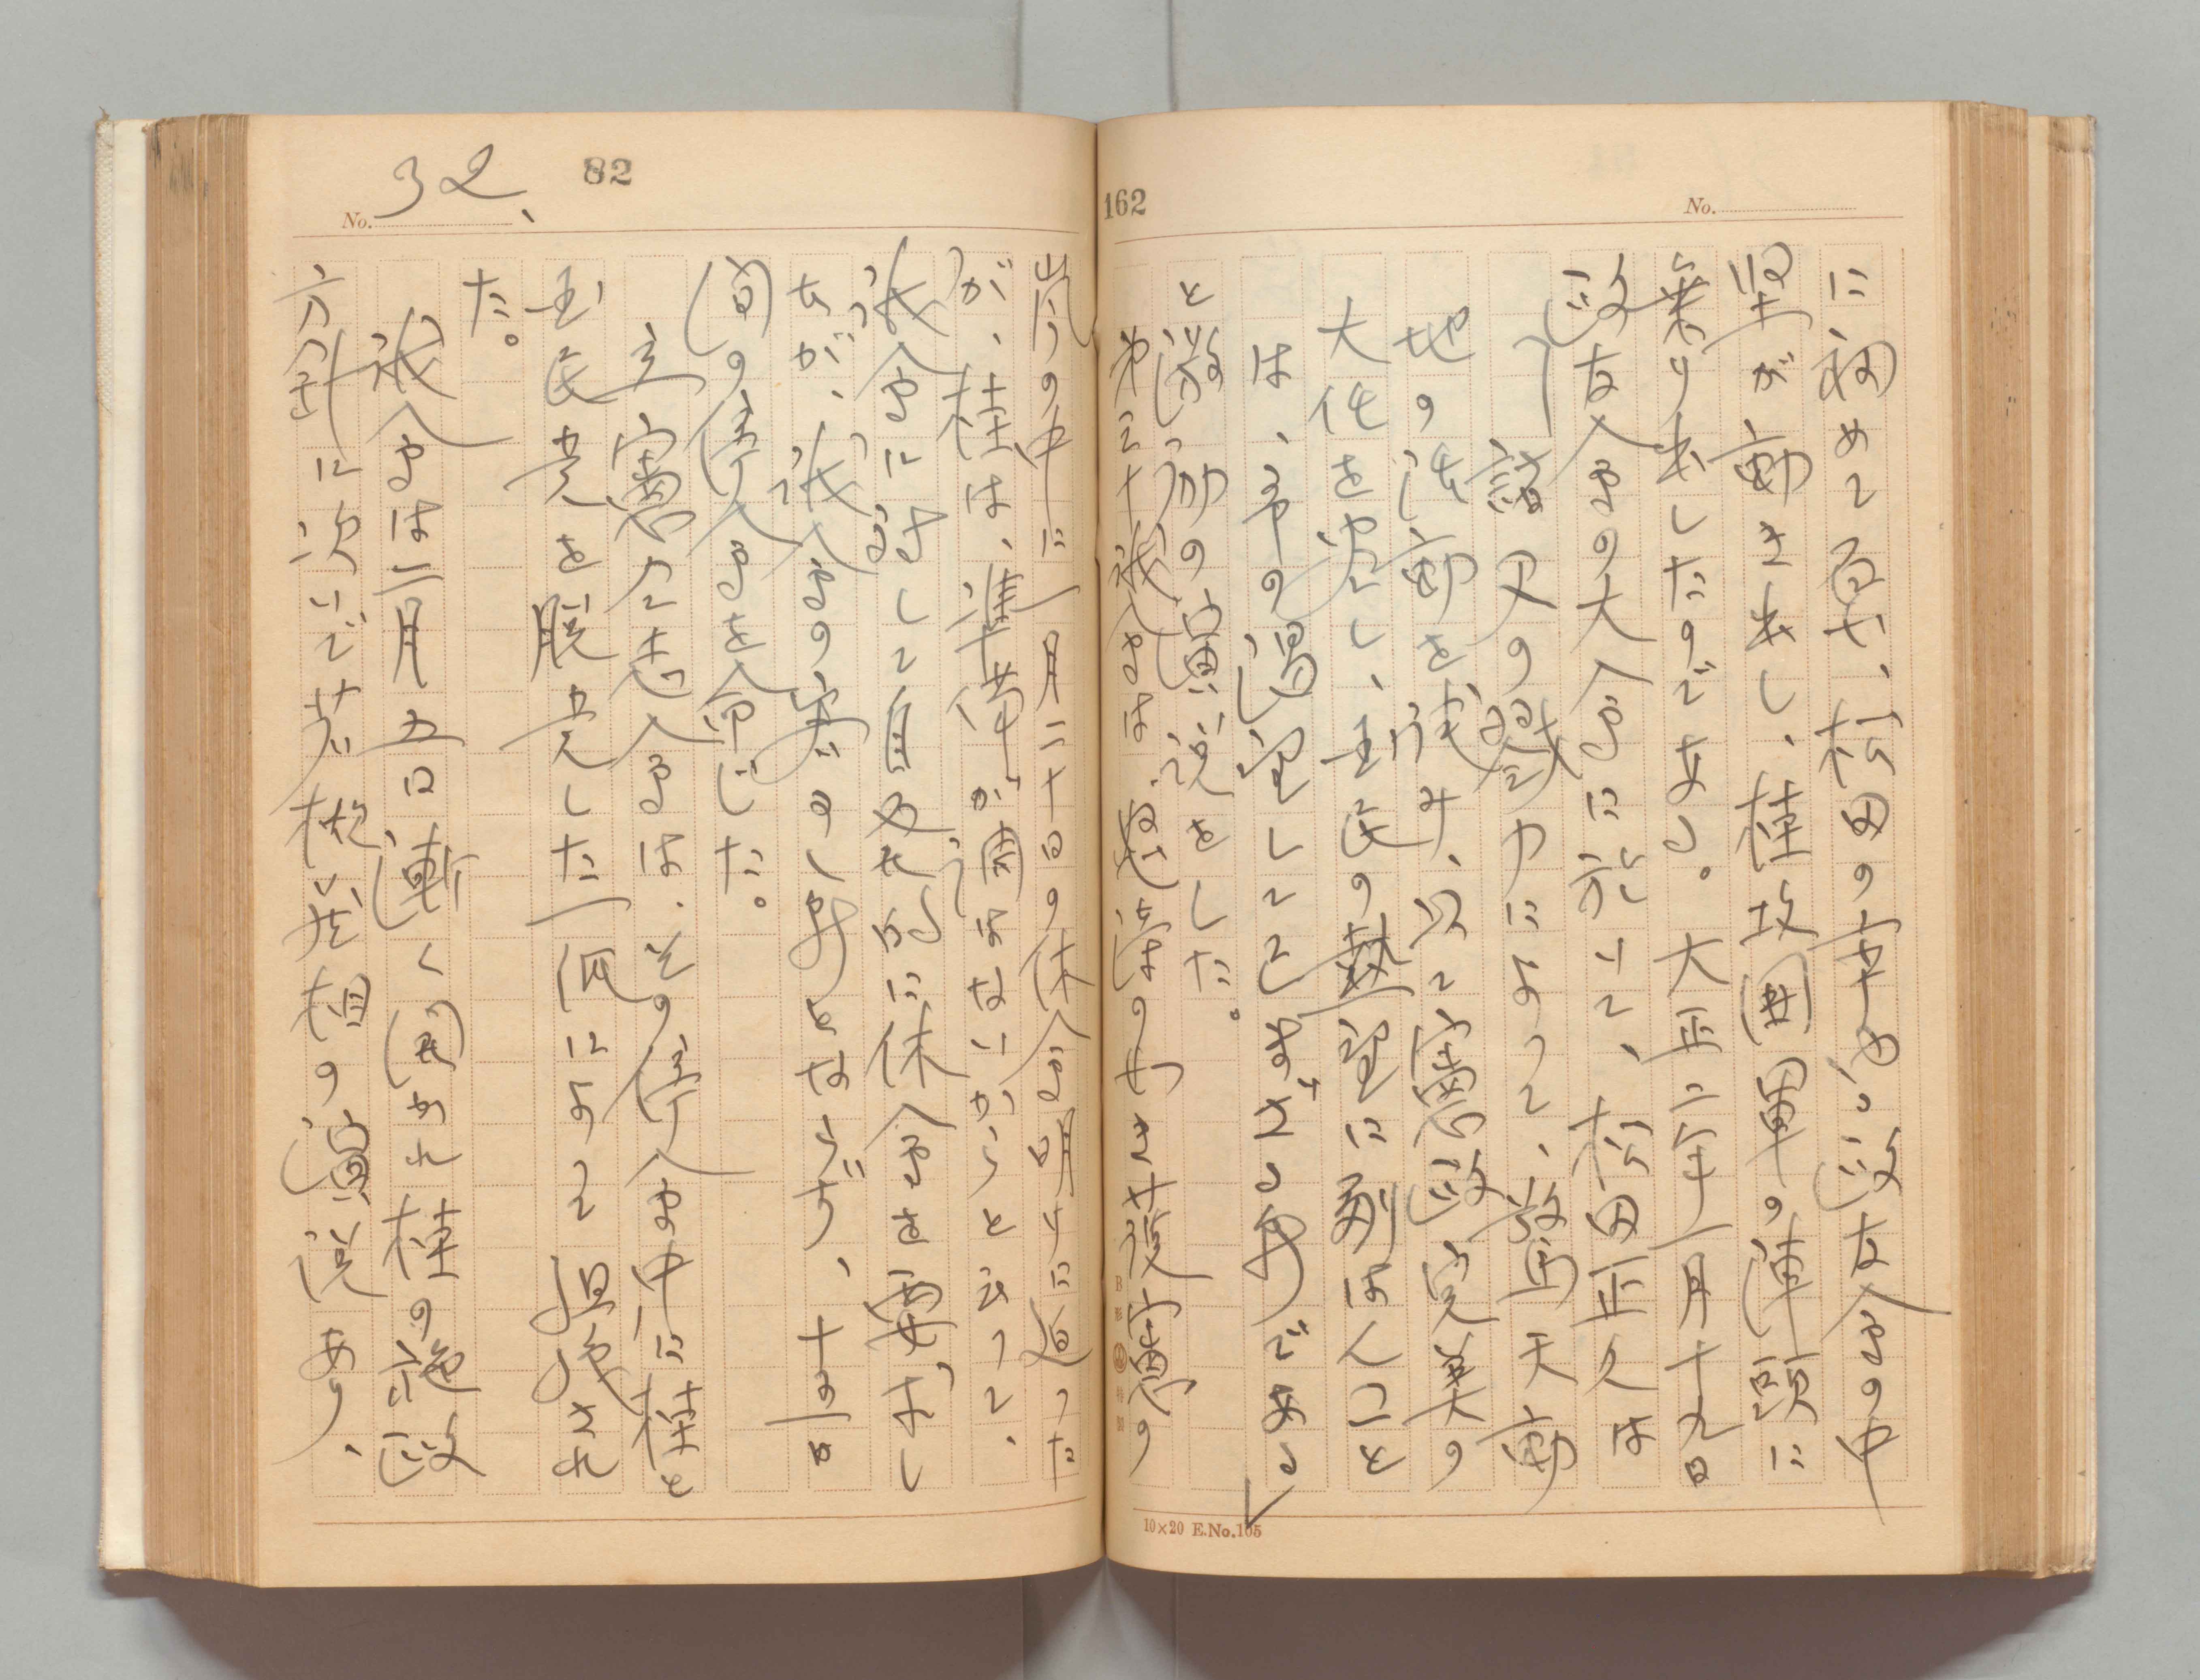 162
No.
に初めて見た、松田の率ゐる政友会の中
堅が動き出し、桂攻囲軍の陣頭に
乗り出したのである。大正二年一月十九日
政友会の大会に於いて、松田正久は
「諸又の努力によって、驚天動
地の活動を試み、以て憲政完美の
大任を全くし、国民の熱望に副はんこと
は、予の渇望して已まざる所である」
と激励の演説をした。
第三十議会は、怒濤の如き護憲の
10×20 E.No.105
82
No. 32、
嵐の中に一月二十日の休会明けに迫った
が、桂は、準備が間はないからと云って、
議会に対して自発的に休会を要求し
たが、議会の応ずるところとならず、十五日
間の停会を命じた。
立憲同志会は、その停会中に桂と
国民党を脱党した一派によって組織され
た。
議会は二月五日漸く開かれ桂の施政
方針に次いで若槻蔵相の演説あり、